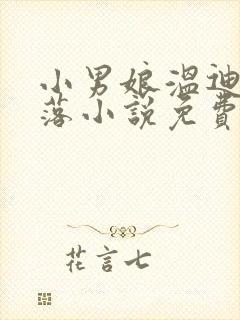 小男娘溫迪
落小說免費
花言七